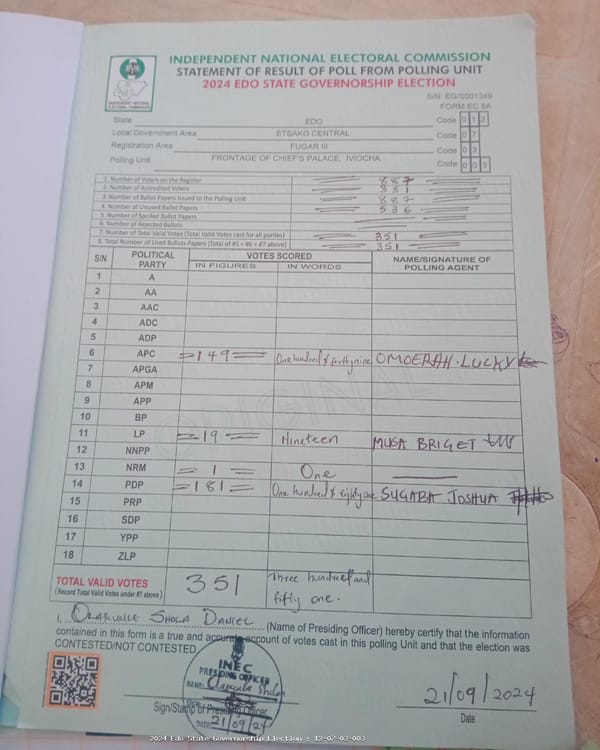 INDEPENDENT NATIONAL ELECTORAL COMMISSION
STATEMENT OF RESULT OF POLL FROM POLLING UNIT
2024 EDO STATE GOVERNORSHIP ELECTION
S/N: EG/0001349
FORM EC 8A
State EDO Code 0 1 2
Local Government Area ETSAKO CENTRAL Code 0 7
Registration Area FUGAR III Code 0 3
Polling Unit FRONTAGE OF CHIEF'S PALACE, IVIOCHA Code 0 0 3
1. Number of Voters on the Register 887
2. Number of Accredited Voters 351
3. Number of Ballot Papers Issued to the Polling Unit 887
4. Number of Unused Ballot Papers 536
5. Number of Spoiled Ballot Papers
6. Number of Rejected Ballots
7. Number of Total Valid Votes (Total Valid Votes cast for all parties) 351
8. Total Number of Used Ballots Papers (Total of #5 + #6 + #7 above) 351
S/N POLITICAL PARTY VOTES SCORED NAME/SIGNATURE OF POLLING AGENT
IN FIGURES IN WORDS
1 A
2 AA
3 AAC
4 ADC
5 ADP
6 APC =149= One hundred & forty nine OMOERAH. LUCKY
7 APGA
8 APM
9 APP
10 BP
11 LP =19= Nineteen MUSA BRIGET
12 NNPP
13 NRM =1= One
14 PDP =181= One hundred & eighty one SUGABA JOSHUA
15 PRP
16 SDP
17 YPP
18 ZLP
ORIGINAL
TOTAL VALID VOTES 351 Three hundred and
(Record Total Valid Votes under #7 above) fifty one.
I, Shola Daniel (Name of Presiding Officer) hereby certify that the information
contained in this form is a true and accurate account of votes cast in this polling Unit and that the election was
CONTESTED/NOT CONTESTED
INEC
PRESIDING OFFICER
NAME: Shola
DATE: 21/09/24
Sign/Stamp of Presiding Officer
21/09/2024
Date
2024 Edo State Governorship Election : 12-07-03-003